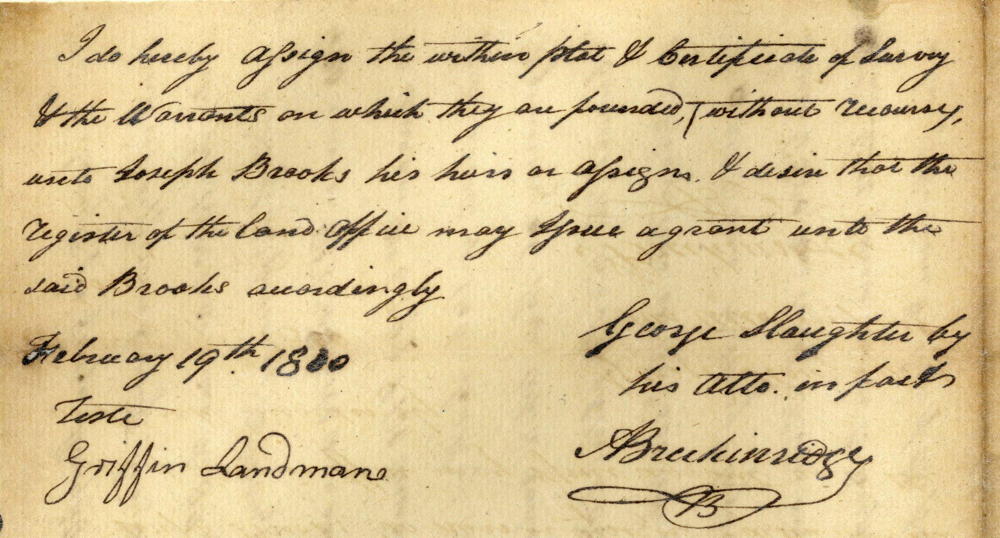 I do hereby assign the within plat & Certificate of Survey
& the Warrants on which they are founded, without recourse,
unto Joseph Brooks his heirs or assigns. & desire that the
register of the Land Office may Issue a grant unto the
said Brooks accordingly
February 19th 1800
George Slaughter by
his Atto. in fact
Teste
Griffin Landman
ABreckinridge
B